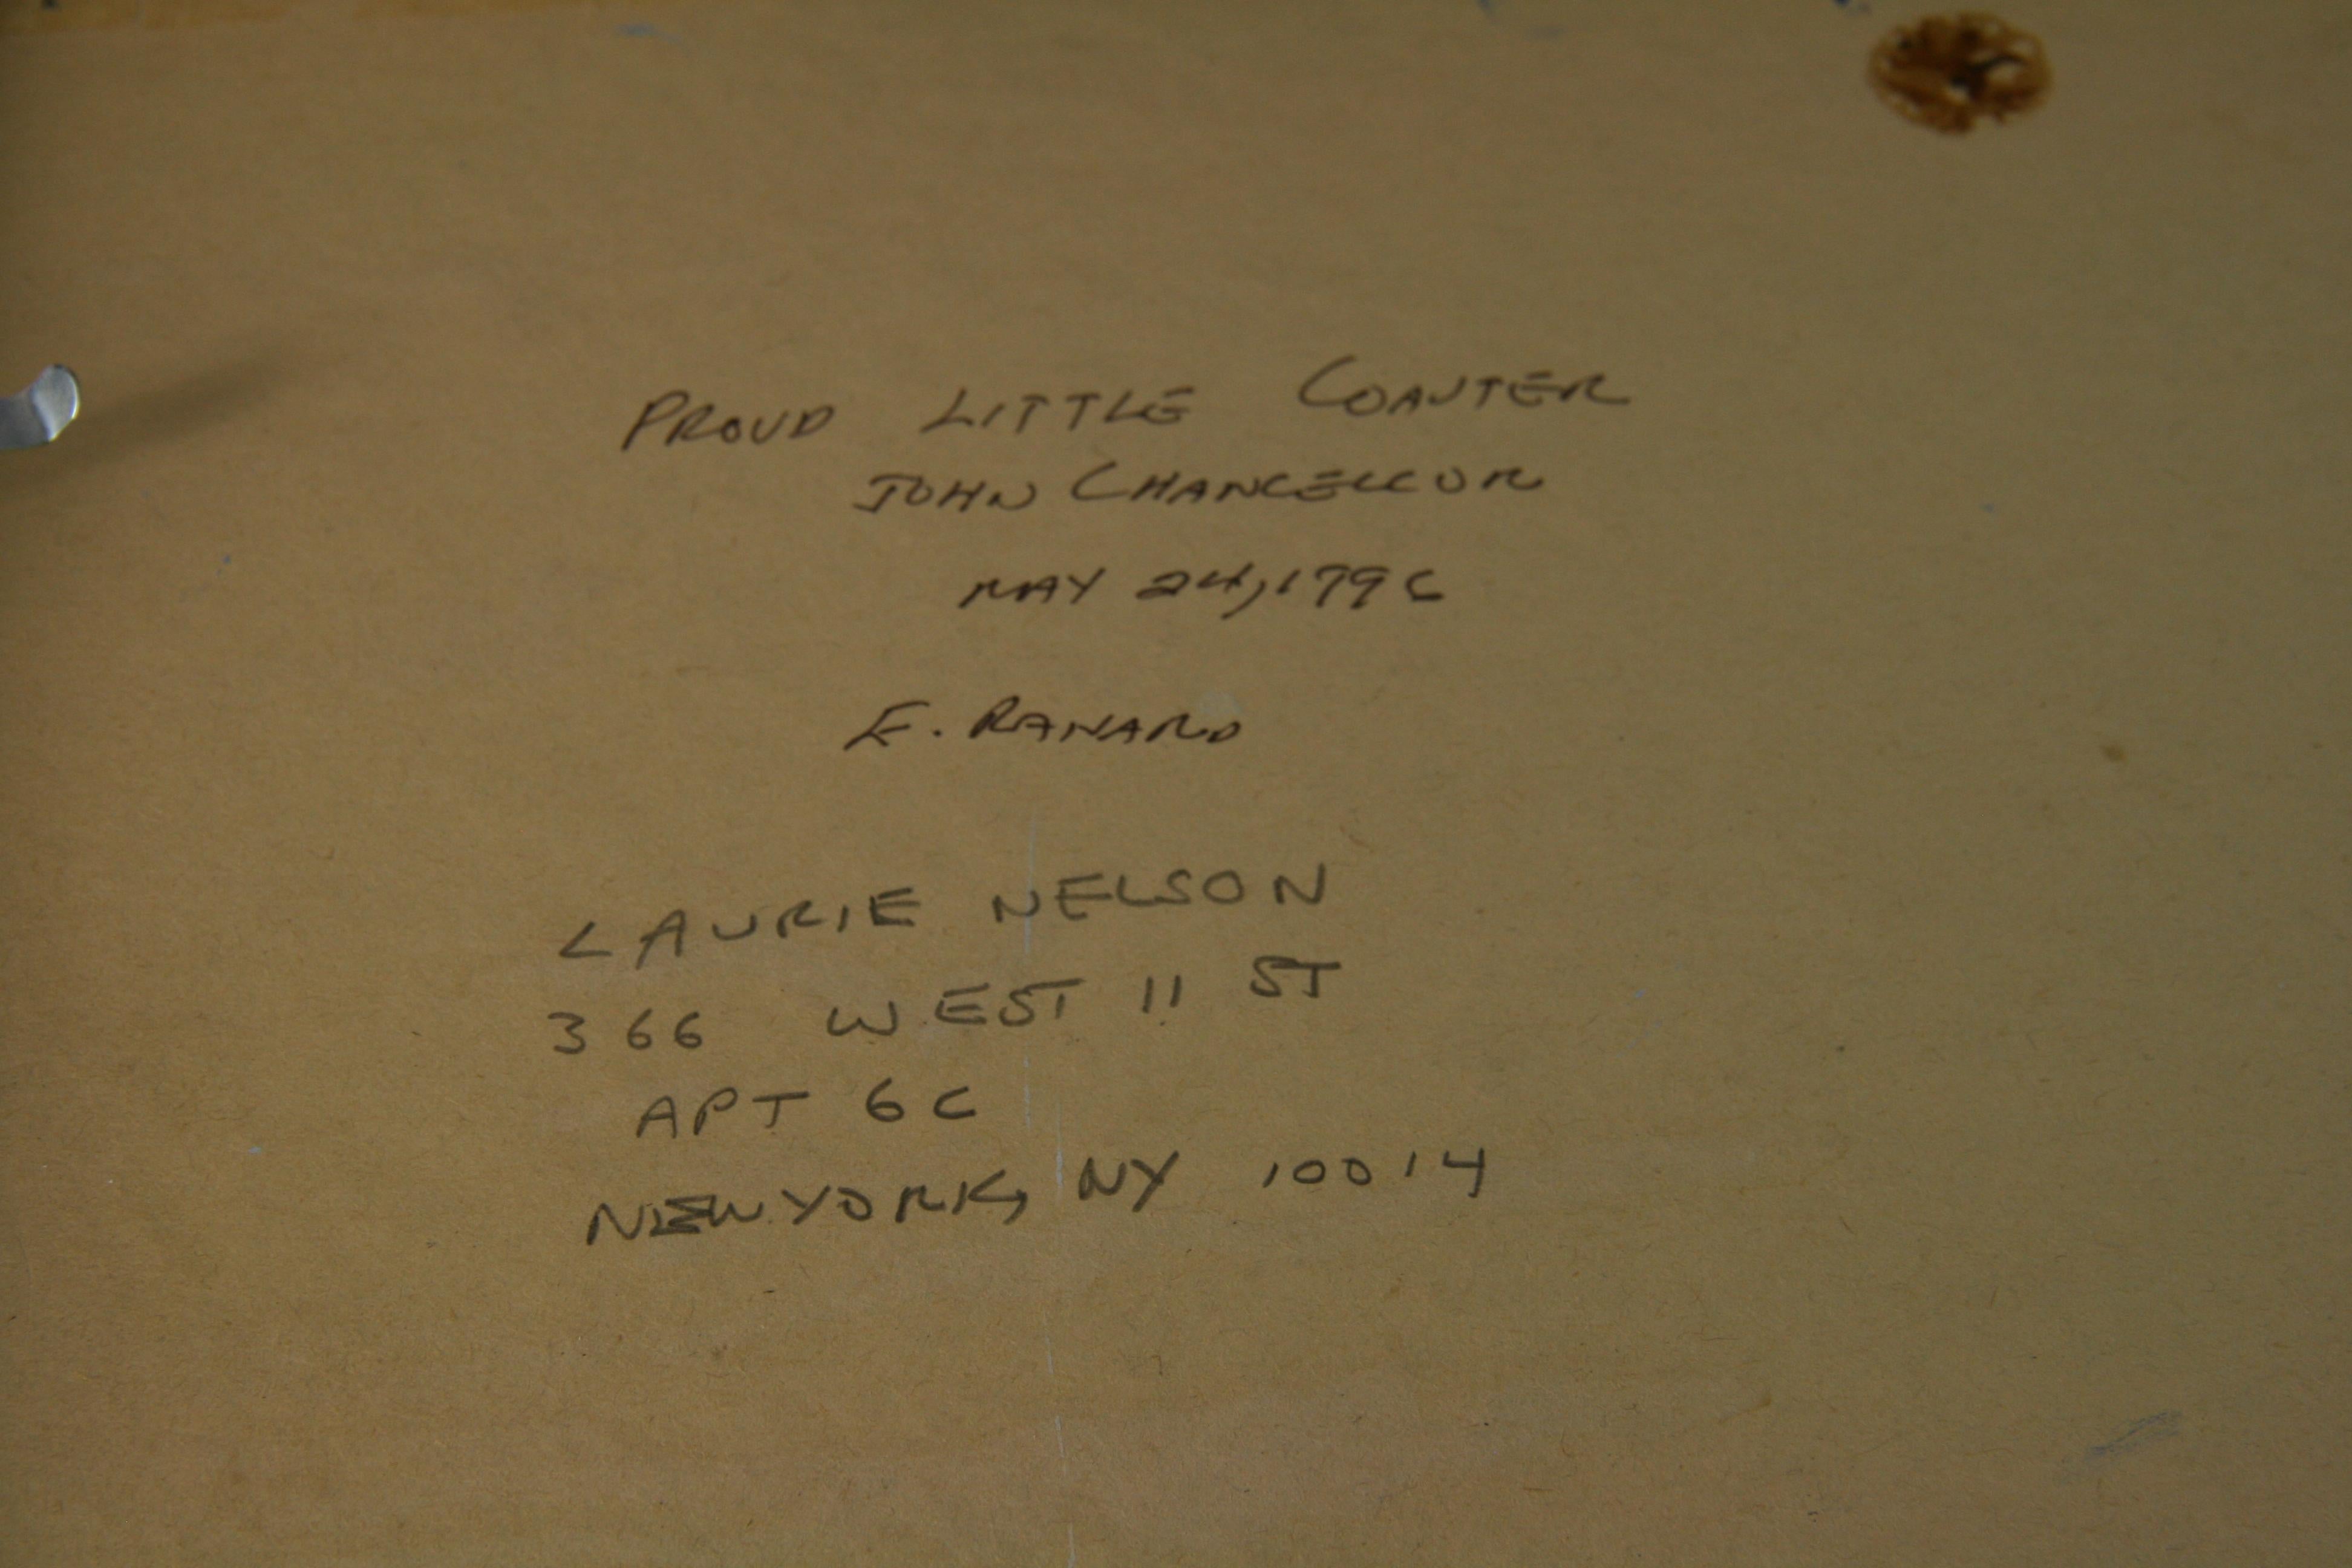 PROUD LITTLE COASTER
JOHN CHANCELLOR
MAY 24, 1996
E. RANARD
LAURIE NELSON
366 WEST 11 ST
APT 6C
NEW YORK, NY 10014